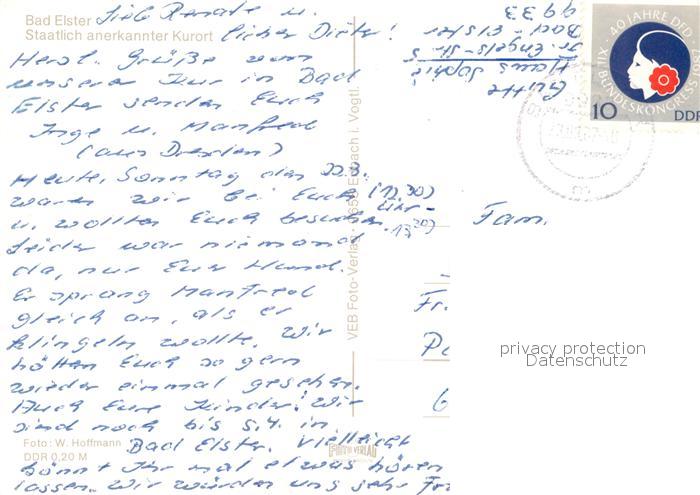 Bad Elster
Staatlich anerkannter Kurort
Liebe Renate u.
lieber Dieter!
Herzl. Grüße von
unserer Kur in Bad
Elster senden Euch
Inge u. Manfred
(aus Dresden)
Heute, Sonntag den 22.3.
waren wir bei Euch (12.30)
u. wollten Euch besuchen. Uhr -
13.20)
Leider war niemand
da, nur Euer Hund.
Er sprang Manfred
gleich an, als er
klingeln wollte. Wir
hätten Euch so gern
wieder einmal gesehen.
Auch Eure Kinder! Wir
sind noch bis 5.4. in
Bad Elster. Vielleicht
könnt Ihr mal etwas hören
lassen. Wir würden uns sehr
Foto: W. Hoffmann
DDR 0,20 M
VEB Foto-Verlag
i. Vogtl.
FOTO VERLAG
Haus Sophie
Fr.-Engels-Str. 5
Bad-Elster
9933
XII. BUNDESKONGRESS
40 JAHRE DFD
10 DDR
Fam.
Fr.
privacy protection
Datenschutz